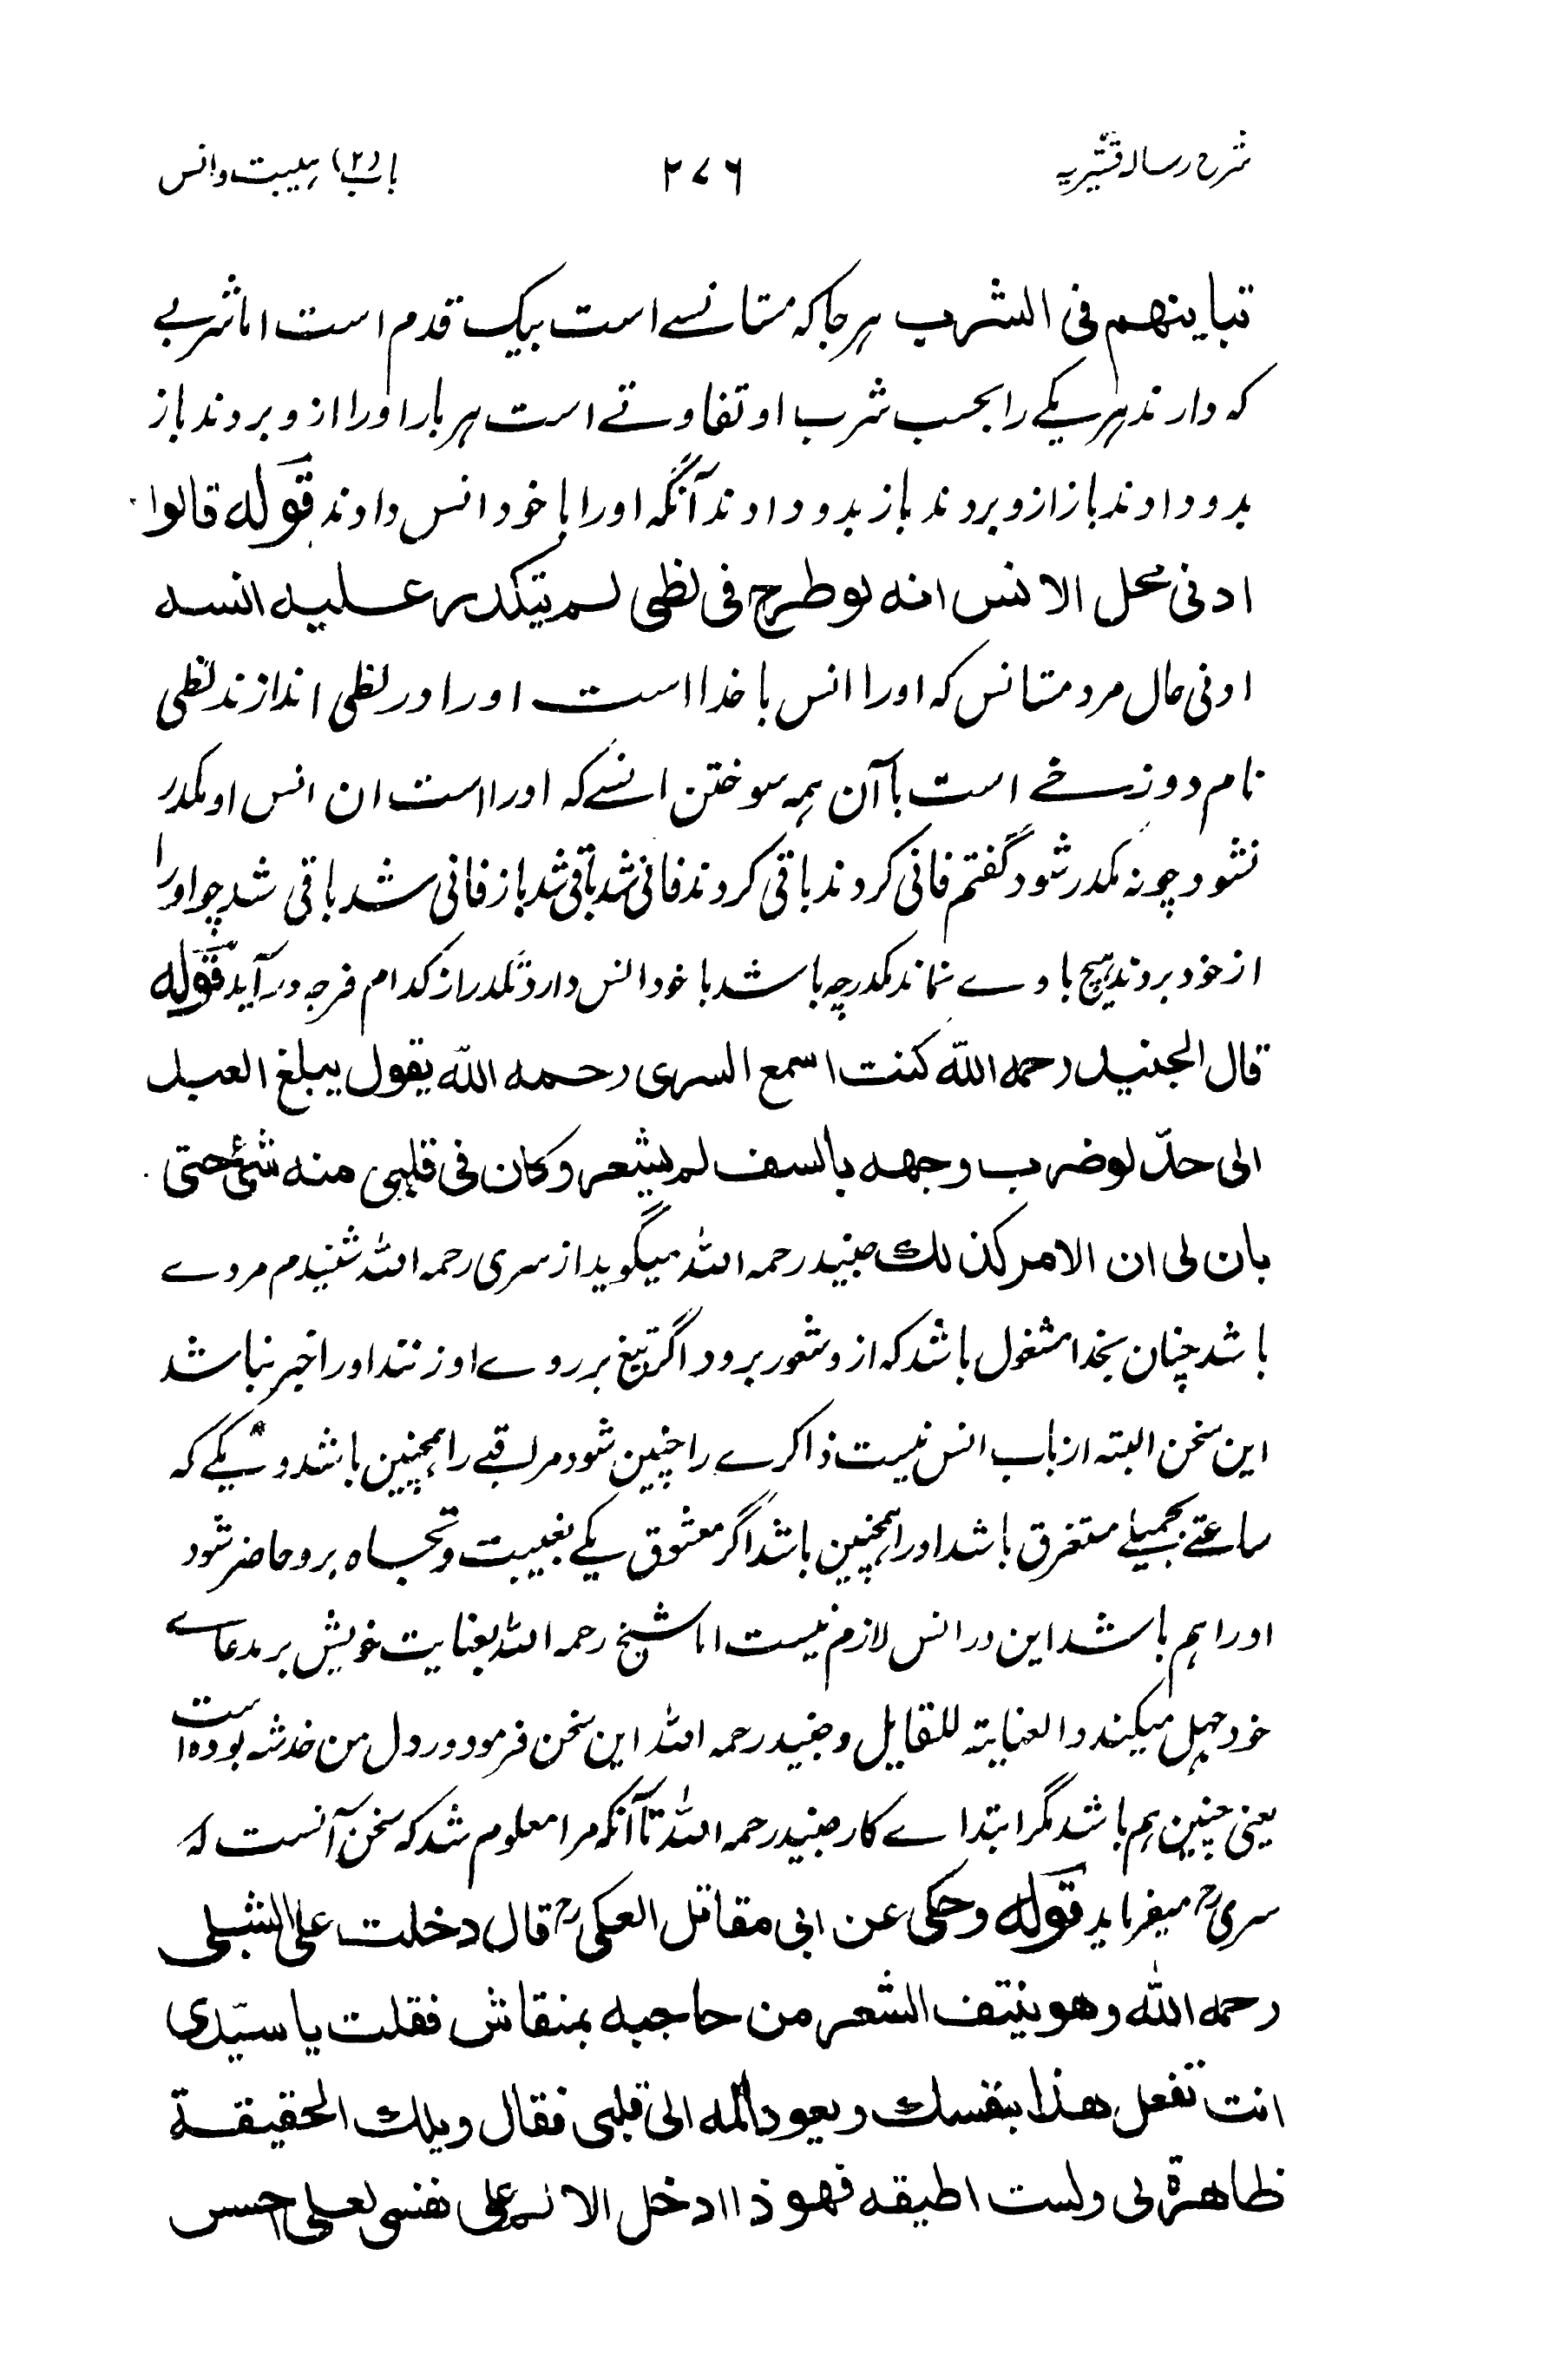 شرح رسالہ قشیریہ
۲۷۶
باب (۲) ہیبت و انس
تباینهم فی الشرب ہر جا کہ متانسے است بیک قدم است اما شربے
کہ دارند ہر یکے را بحسب شرب او تفاوتے است ہر بار اورا ازو بردند باز
بدو دادند باز ازو بردند باز بدو دادند آنگہ اورا با خود انس دادند قوله قالوا
ادنی محل الانس انه لو طرح فی لظی لم یتکدر علیه انسه
ادنی حال مرد متانس کہ اورا انس با خدا است اورا در لظی اندازند لظی
نام دوزخے است باآن ہمہ سوختن انسے کہ اورا است ان انس او مکدر
نشود چونہ مکدر شود گفتم فانی کردند باقی کردند فانی شد باقی شد باز فانی شد باقی شد چو اورا
از خود بردند ہیچ باوے نماند مکدر چہ باشد با خود انس دارد تکدر از کدام فرجہ در آید قوله
قال الجنید رحمه الله کنت اسمع السری رحمه الله یقول یبلغ العبد
الی حدّ لو ضرب وجهه بالسف لم یشعر و کان فی قلبی منه شئ حتی
بان لی ان الامر کذلك جنید رحمہ اللہ میگوید از سری رحمہ اللہ شنیدم مردے
باشد چنان بخدا مشغول باشد کہ ازو شعور برود اگر تیغ بر روے او زنند اورا خبر نباشد
این سخن البتہ از باب انس نیست ذاکرے را چنین شود مراقبے را ہمچنین باشد و یکے کہ
ساعتے بجمیلے مستغرق باشد اورا ہمچنین باشد اگر معشوق یکے بغیبت و تجاہ برو حاضر شود
اورا ہم باشد این در انس لازم نیست اما شیخ رحمہ اللہ بعنایت خویش بر مدعاے
خود حمل میکند والعنایة للقایل و جنید رحمہ اللہ این سخن فرمود و در دل من خدشہ بودہ است
یعنی چنین ہم باشد مگر ابتداے کار جنید رحمہ اللہ تا آنکہ مرا معلوم شد کہ سخن آنست کہ
سریؒ میفرماید قوله و حکی عن ابی مقاتل العکیؒ قال دخلت علی الشبلی
رحمه الله و هو ینتف الشعر من حاجبه بمنقاش فقلت یا سیّدی
انت تفعل هذا بنفسك و یعود المه الی قلبی فقال ویلك الحقیقة
ظاهرة لی و لست اطیقه فهو ذا ادخل الالم علی نفسی لعلی احس